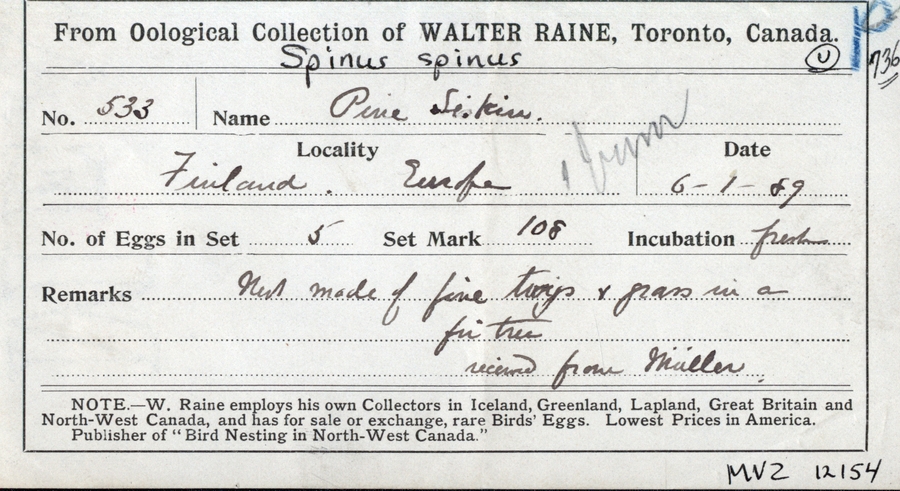 From Oological Collection of WALTER RAINE, Toronto, Canada.
Spinus spinus U
736
No. 533 Name Pine Siskin.
Locality Date
Finland. Europe 6-1-89
No. of Eggs in Set 5 Set Mark 108 Incubation fresh
Remarks Nest made of fine twigs & grass in a
fir tree
received from Müller.
NOTE.—W. Raine employs his own Collectors in Iceland, Greenland, Lapland, Great Britain and
North-West Canada, and has for sale or exchange, rare Birds' Eggs. Lowest Prices in America.
Publisher of "Bird Nesting in North-West Canada."
MVZ 12154